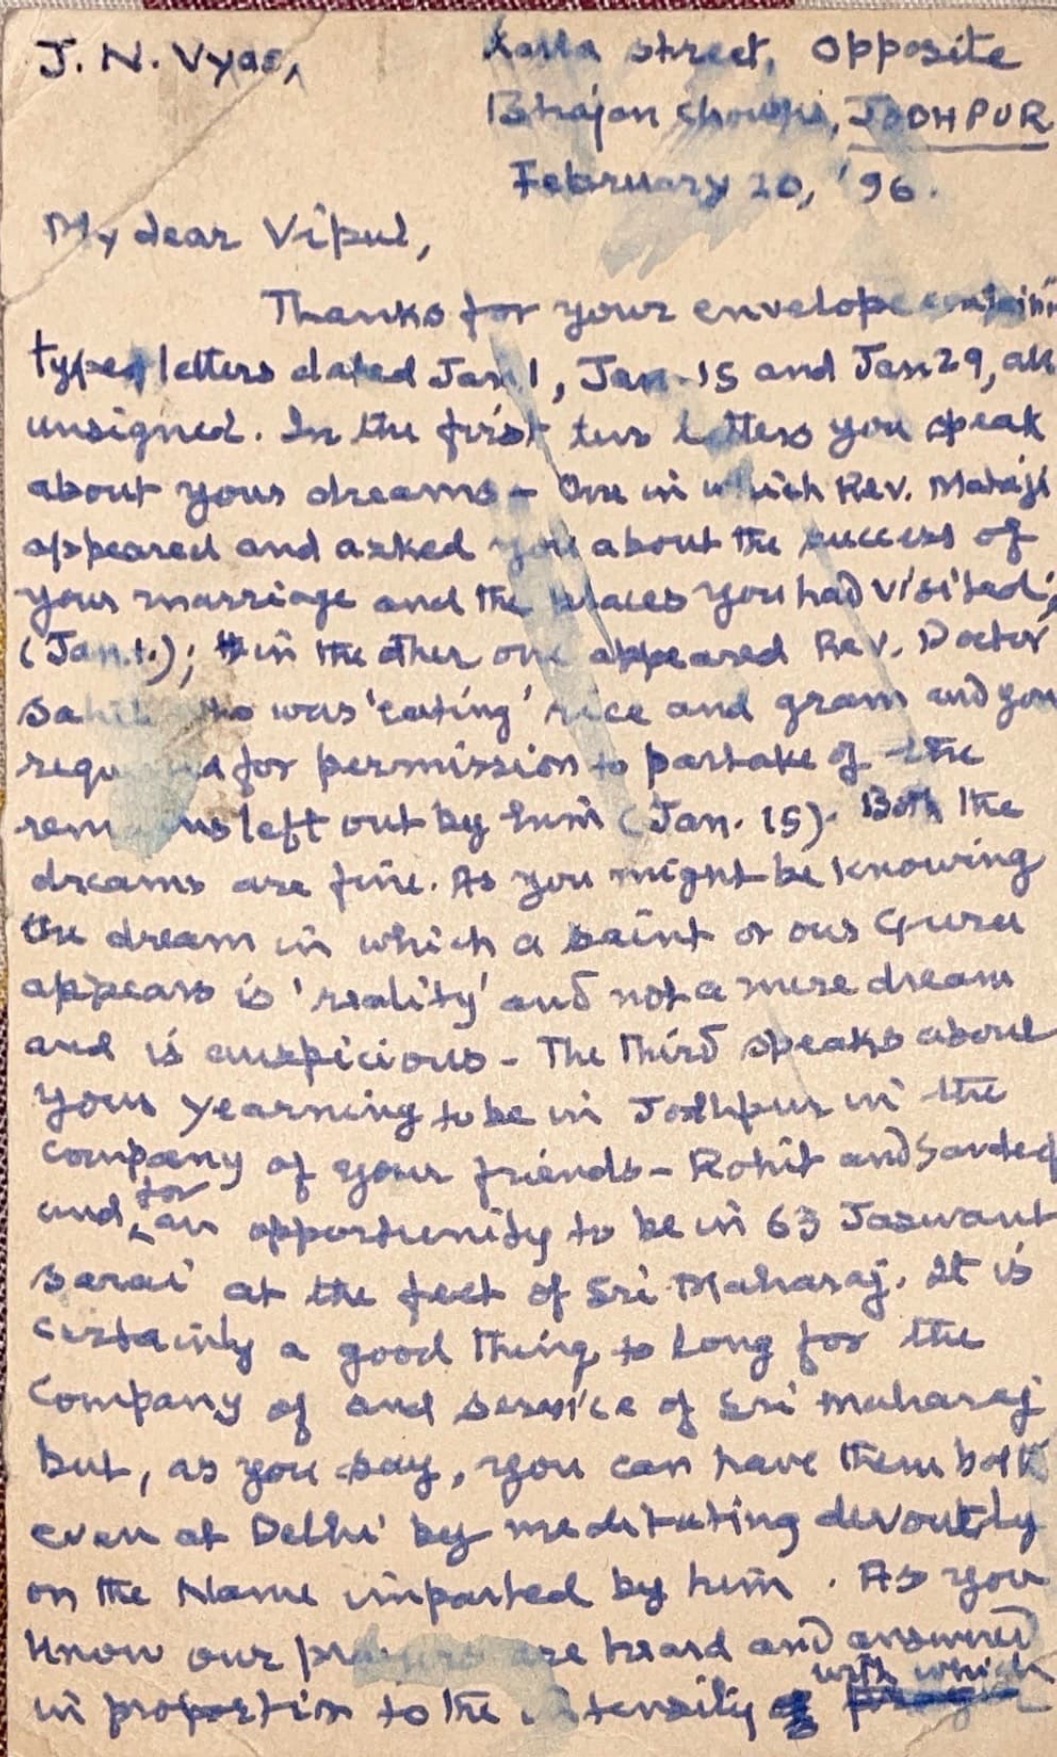 J. N. Vyas,
Kalla Street, Opposite
Bhajan Chowki, JODHPUR
February 20, '96.
My dear Vipul,
Thanks for your envelope containin
typed letters dated Jan. 1, Jan. 15 and Jan 29, all
unsigned. In the first two letters you speak
about your dreams - One in which Rev. Mataji
appeared and asked you about the success of
your marriage and the places you had visited;
(Jan. 1.); in the other one appeared Rev. Doctor
Sahib who was 'eating' rice and gram and you
requested for permission to partake of the
remains left out by him (Jan. 15). Both the
dreams are fine. As you might be knowing
the dream in which a saint or our Guru
appears is 'reality' and not a mere dream
and is auspicious - The third speaks about
your yearning to be in Jodhpur in the
company of your friends - Rohit and Sandeep
and for an opportunity to be in 63 Jaswant
Sarai at the feet of Sri Maharaj. It is
certainly a good thing to long for the
company of and service of Sri Maharaj
but, as you say, you can have them both
even at Delhi by meditating devoutly
on the Name imparted by him. As you
know our prayers are heard and answered
in proportion to the intensity with which